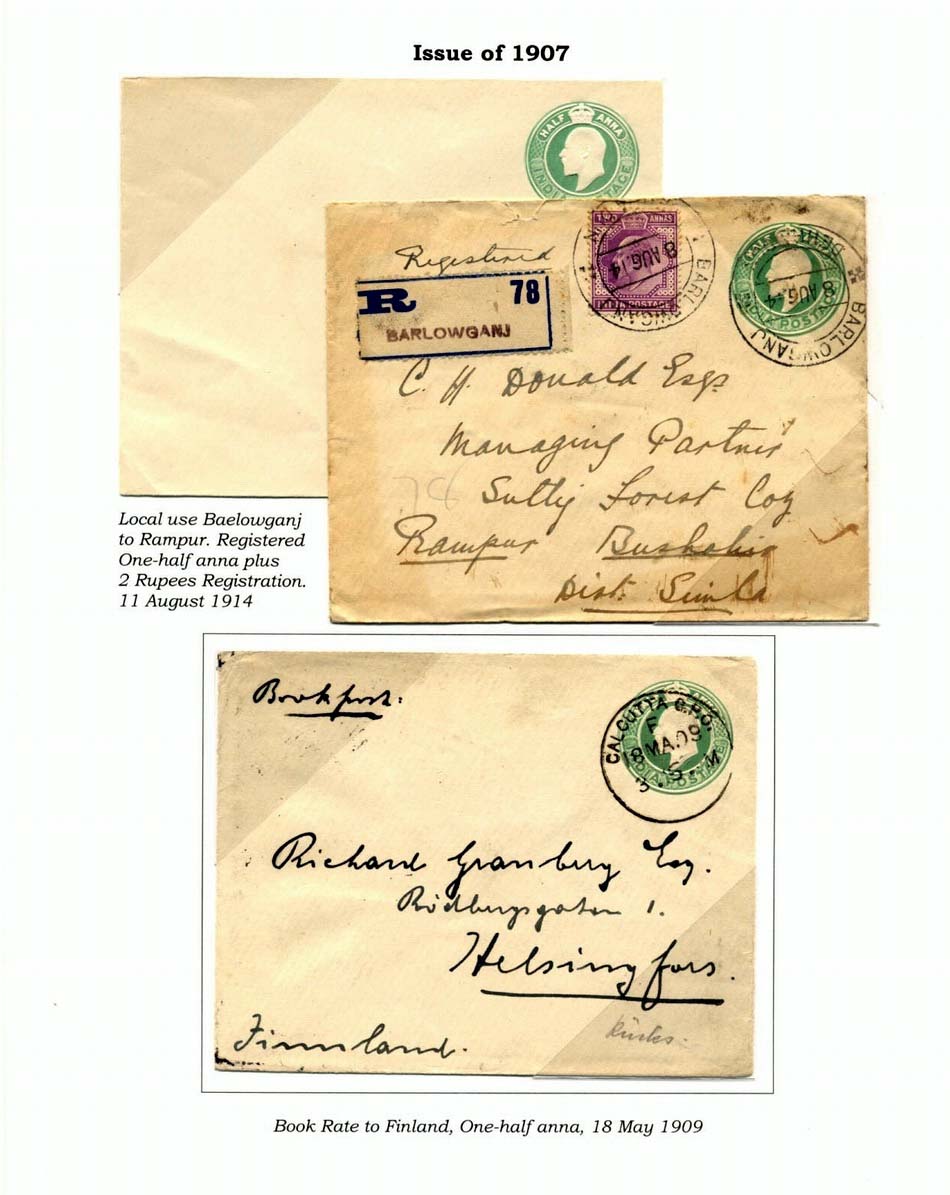 Issue of 1907
HALF ANNA
INDIA POSTAGE
Registered
R 78
BARLOWGANJ
TWO ANNAS
POSTAGE
BARLOWGANJ
8 AUG.14
HALF
INDIA POSTAGE
BARLOWGANJ
8 AUG.14
C. H. Donald Esqr
Managing Partner
78
Sutlej Forest Coy
Rampur Bushahir
Dist. Simla
Local use Baelowganj
to Rampur. Registered
One-half anna plus
2 Rupees Registration.
11 August 1914
Bookpost.
CALCUTTA G.P.O.
F
18 MA.09
INDIA POSTAGE
Richard Granberg Esq.
Rödbergsgatan 1.
Helsingfors.
Finnland.
Book Rate to Finland, One-half anna, 18 May 1909